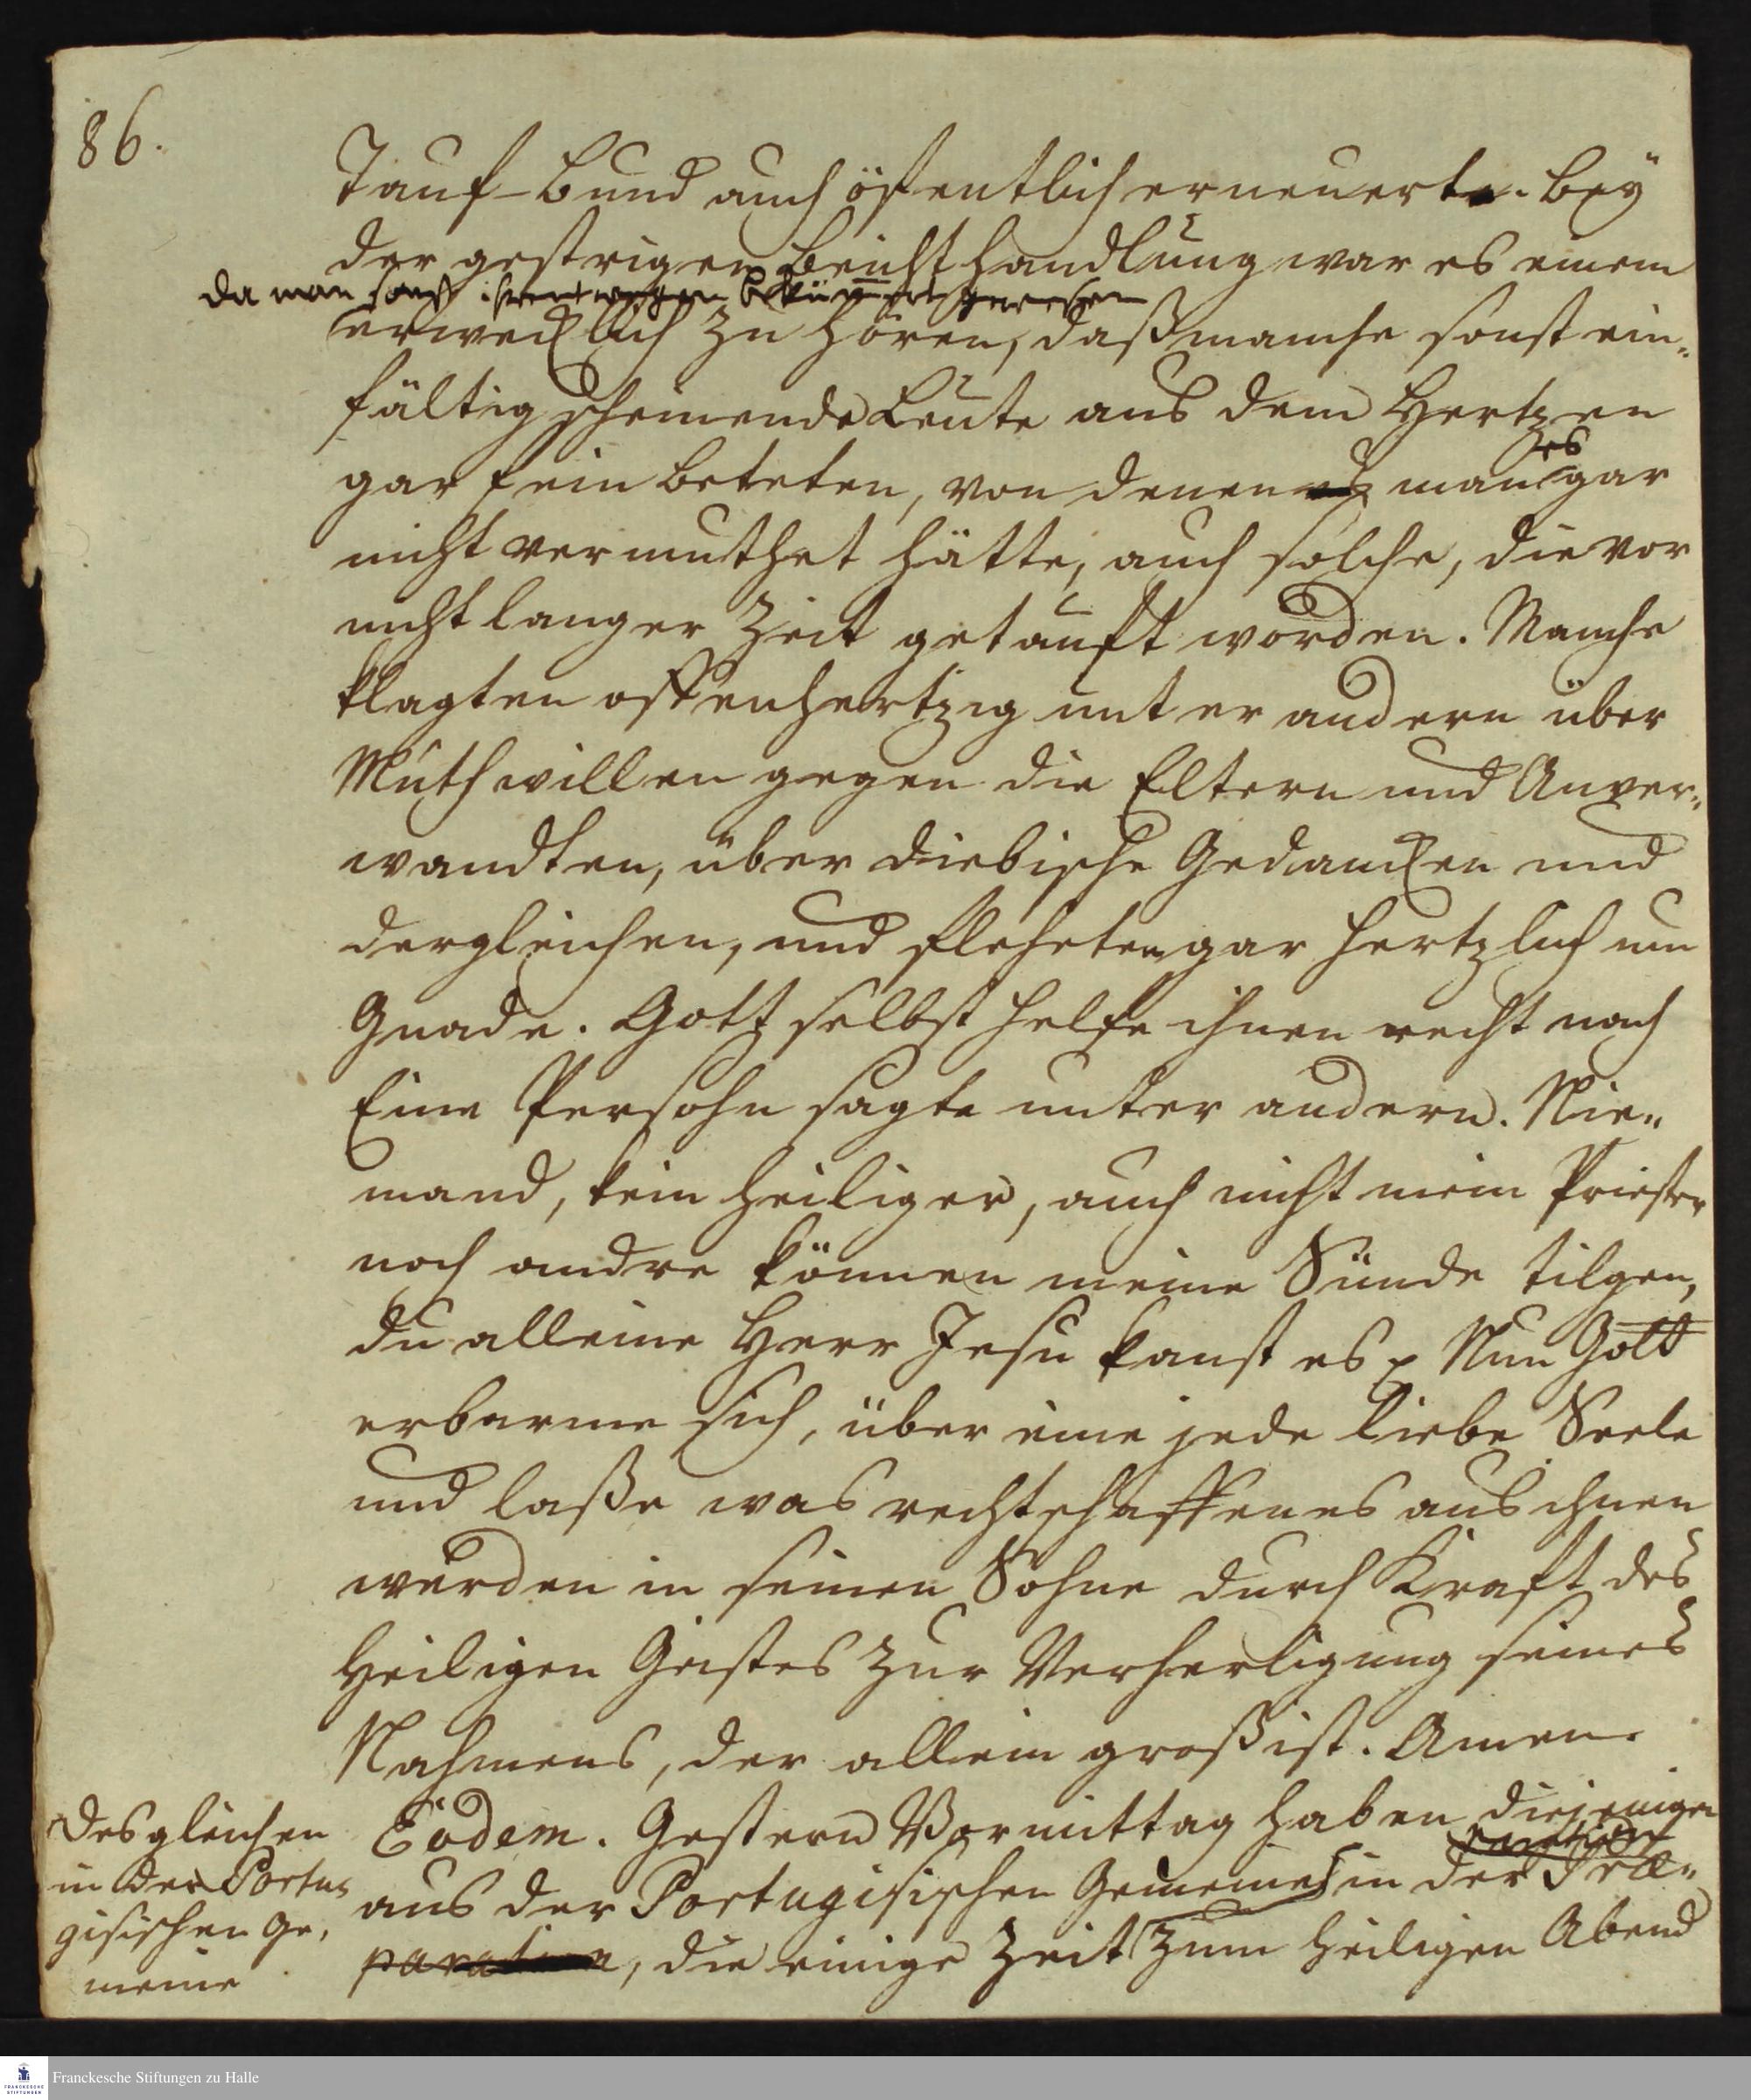 86.
Tauf-Bund auch öffentlich erneuerte. Bey
der gestrigen Beichthandlung war es einem
da man sonst ihrentwegen bekümmert gewesen
erwecklich zu hören, daß manche sonst ein„
fältig scheinende Leute aus dem Hertzen
es
gar fein beteten, von denen man gar
nicht vermuthet hätte, auch solche, die vor
nicht langer Zeit getauft worden. Manche
klagten offenhertzig unter andern über
Muthwillen gegen die Eltern und Anver„
wandten, über diebische Gedancken und
dergleichen, und fleheten gar hertzlich um
Gnade. Gott selbst helfe ihnen recht nach
Eine Persohn sagte unter andern. Nie„
mand, kein heiliger, auch nicht mein Priester
noch andre können meine Sünde tilgen,
du alleine Herr Jesu kanst es Nun Gott
erbarme sich, über eine jede liebe Seele
und laße was rechtschaffenes aus ihnen
werden in seinen Sohne durch Krafft des
Heiligen Geistes zur Verherligung seines
Nahmens, der allein groß ist. Amen.
Desgleichen
in der Portu
gisischen Ge,
meine
Eodem. Gestern Vormittag haben diejenigen
aus der Portugisischen Gemeine in der Præ„
paration, die einige Zeit zum Heiligen Abend
Franckesche Stiftungen zu Halle